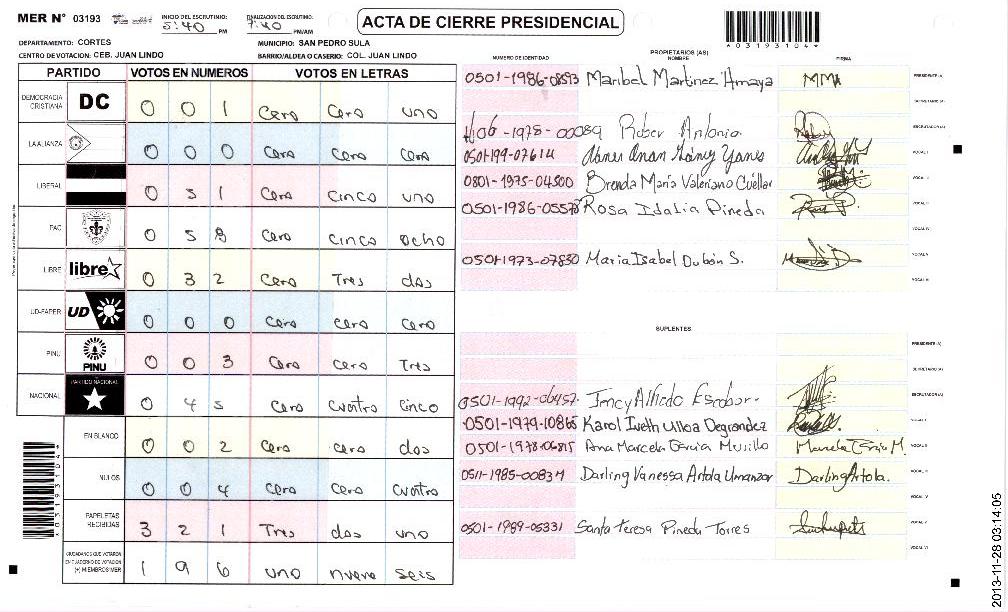 MER N° 03193
INICIO DEL ESCRUTINIO: 5:40 PM
FINALIZACIÓN DEL ESCRUTINIO: 7:40 PM/AM
ACTA DE CIERRE PRESIDENCIAL
*03193104*
DEPARTAMENTO: CORTES
MUNICIPIO: SAN PEDRO SULA
CENTRO DE VOTACION: CEB. JUAN LINDO
BARRIO/ALDEA O CASERIO: COL. JUAN LINDO
PARTIDO VOTOS EN NUMEROS VOTOS EN LETRAS
DEMOCRACIA CRISTIANA DC 0 0 1 Cero Cero uno
LA ALIANZA 0 0 0 Cero Cero Cero
LIBERAL 0 5 1 Cero Cinco uno
PAC 0 5 8 Cero cinco ocho
LIBRE libre 0 3 2 Cero Tres dos
UD-FAPER UD 0 0 0 Cero Cero Cero
PINU PINU 0 0 3 Cero Cero Tres
NACIONAL PARTIDO NACIONAL 0 4 5 Cero Cuatro cinco
EN BLANCO 0 0 2 Cero Cero dos
NULOS 0 0 4 Cero Cero Cuatro
PAPELETAS RECIBIDAS 3 2 1 Tres dos uno
CIUDADANOS QUE VOTARON EN CUADERNO DE VOTACION (+) MIEMBROS MER 1 9 6 uno nueve seis
PROPIETARIOS (AS)
NUMERO DE IDENTIDAD NOMBRE FIRMA
0501-1986-0893 Maribel Martinez Amaya MMA PRESIDENTE (A)
SECRETARIO (A)
1978-00089 Rober Antonio ESCRUTADOR (A)
0501-199-07614 Yanes VOCAL I
0801-1975-04500 Brenda María Valeriano Cuéllar VOCAL II
0501-1986-05578 Rosa Idalia Pineda VOCAL III
VOCAL IV
0501-1973-07830 Maria Isabel Dubón S. VOCAL V
VOCAL VI
SUPLENTES
PRESIDENTE (A)
SECRETARIO (A)
0501-1992-06457 Jency Alfredo Escobar ESCRUTADOR (A)
0501-1979-10865 Karol Iveth Ulloa Degrandez VOCAL I
0501-1978-06815 Ana Marcela García Murillo Marcela García M. VOCAL II
0511-1985-00834 Darling Vanessa Artola Umanzor Darling Artola. VOCAL III
VOCAL IV
0501-1989-05331 Santa Teresa Pineda Torres VOCAL V
VOCAL VI
2013-11-28 03:14:05